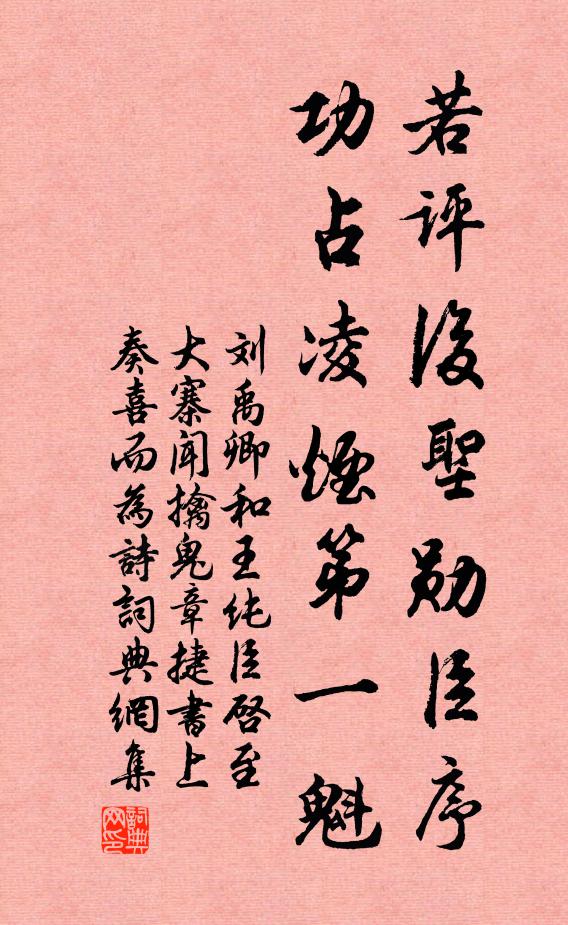 若评後聖勋臣序
功占凌煙第一魁
刘禹卿和王纯臣启至
大寨闻擒鬼章捷書上
奏喜而為詩詞典網集
詞典网印